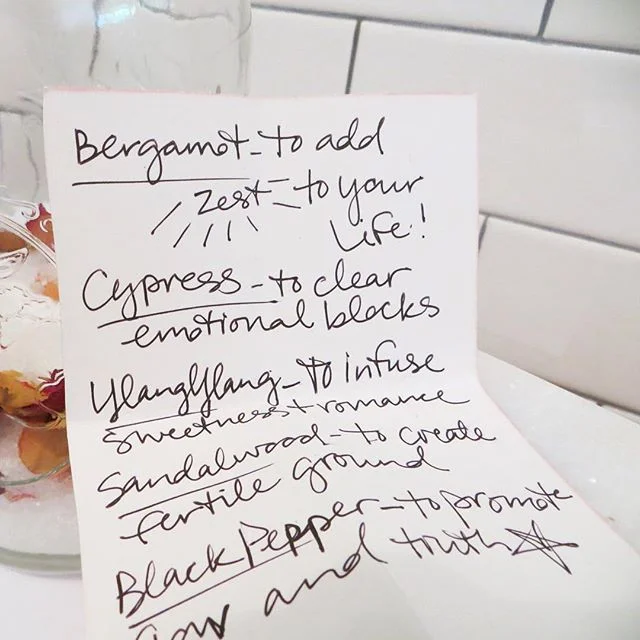 Bergamot - to add
Zest - to your
Life!
Cypress - to clear
emotional blocks
Ylang Ylang - to infuse
sweetness + romance
Sandalwood - to create
fertile ground
Black Pepper - to promote
and truth